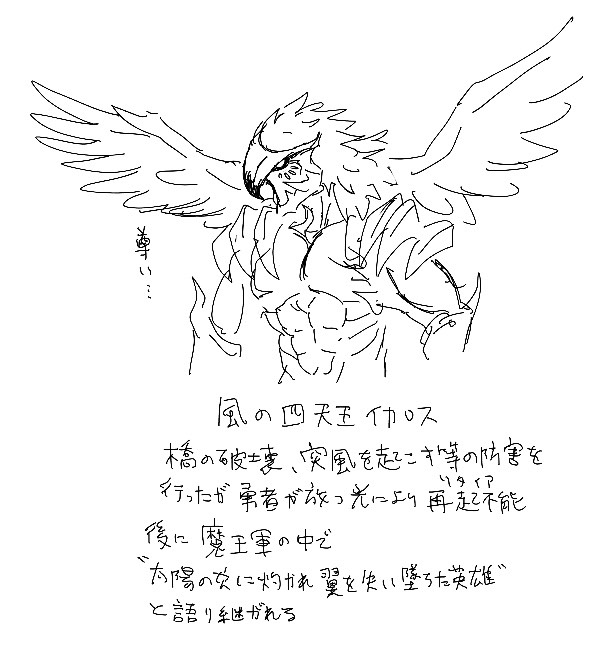 尊い…
風の四天王イカロス
橋の破壊、突風を起こす等の防害を
行ったが勇者が放つ光により再起不能
リタイア
後に魔王軍の中で
"太陽の炎に灼かれ翼を失い墜ちた英雄"
と語り継がれる